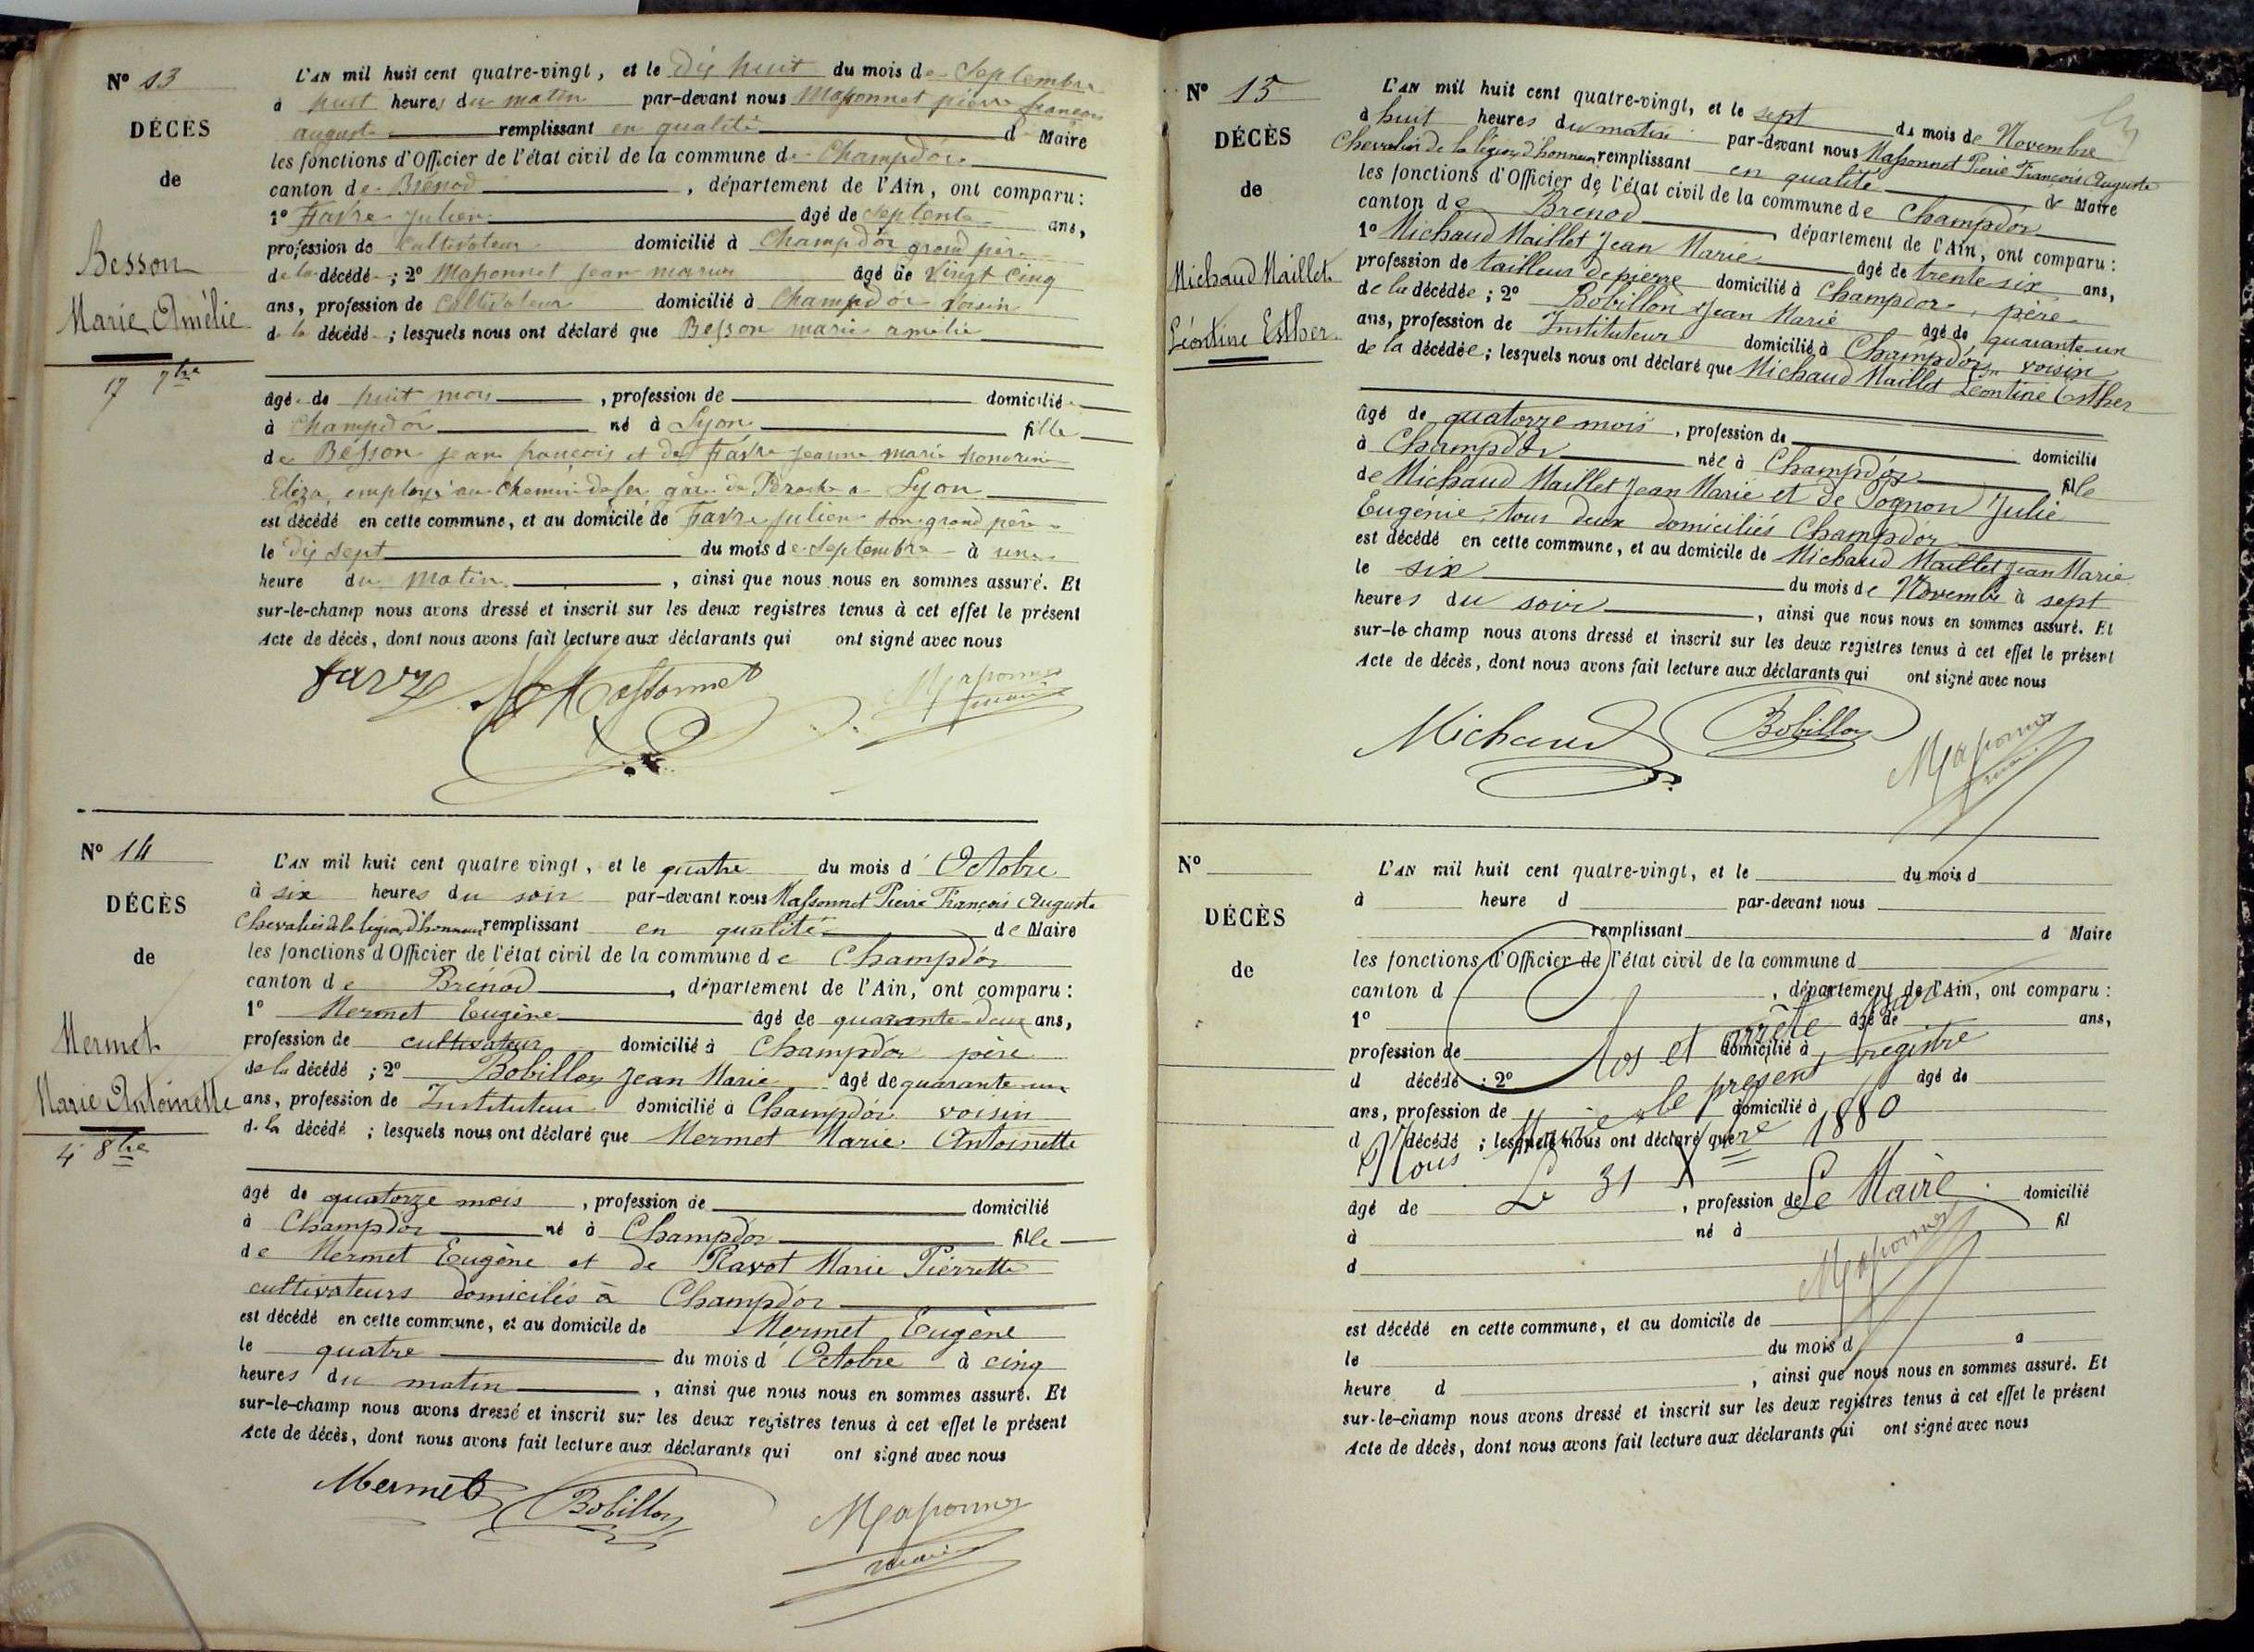 N° 13
DÉCÈS
de
Besson
Marie Amélie
17 7bre
L'AN mil huit cent quatre-vingt, et le dix huit du mois de Septembre
à huit heures du matin par-devant nous Massonnet pierre françois
auguste remplissant en qualité d Maire
les fonctions d'Officier de l'état civil de la commune de Champdor
canton de Brénod, département de l'Ain, ont comparu:
1° Favre Julien âgé de septente ans,
profession de Cultivateur domicilié à Champdor grand père
de la décédé; 2° Massonnet Jean marius âgé de Vingt Cinq
ans, profession de Cultivateur domicilié à Champdor Voisin
d la décédé; lesquels nous ont déclaré que Besson marie amélie
âgé de huit mois, profession de domicilié
à Champdor né à Lyon fille
de Besson jean françois et de Favre Jeanne marie honorine
Eliza, employé au Chemin de fer gare de Perache a Lyon
est décédé en cette commune, et au domicile de Favre Julien son grand père
le dix sept du mois de Septembre à une
heure du Matin, ainsi que nous nous en sommes assuré. Et
sur-le-champ nous avons dressé et inscrit sur les deux registres tenus à cet effet le présent
Acte de décès, dont nous avons fait lecture aux déclarants qui ont signé avec nous
Favre Massonnet Massonnet
maire
N° 14
DÉCÈS
de
Mermet
Marie Antoinette
4 8bre
L'AN mil huit cent quatre vingt, et le quatre du mois d'Octobre
à six heures du soir par-devant nous Massonnet Pierre François Auguste
Chevalier de la légion d'honneur remplissant en qualité de Maire
les fonctions d'Officier de l'état civil de la commune de Champdor
canton de Brénod, département de l'Ain, ont comparu:
1° Mermet Eugène âgé de quarante-deux ans,
profession de cultivateur domicilié à Champdor père
de la décédé; 2° Bobillon Jean Marie âgé de quarante un
ans, profession de Instituteur domicilié à Champdor voisin
d. la décédé; lesquels nous ont déclaré que Mermet Marie Antoinette
âgé de quatorze mois, profession de domicilié
à Champdor né à Champdor fille
de Mermet Eugène et de Ravot Marie Pierrette
cultivateurs domiciliés à Champdor
est décédé en cette commune, et au domicile de Mermet Eugène
le quatre du mois d'Octobre à cinq
heures du matin, ainsi que nous nous en sommes assuré. Et
sur-le-champ nous avons dressé et inscrit sur les deux registres tenus à cet effet le présent
Acte de décès, dont nous avons fait lecture aux déclarants qui ont signé avec nous
Mermet Bobillon Massonnet
maire
N° 15
DÉCÈS
de
Michaud Maillet
Léontine Esther
L'AN mil huit cent quatre-vingt, et le sept du mois de Novembre
à huit heures du matin par-devant nous Massonnet Pierre François Auguste
Chevalier de la légion d'honneur remplissant en qualité de Maire
les fonctions d'Officier de l'état civil de la commune de Champdor
canton de Brénod, département de l'Ain, ont comparu:
1° Michaud Maillet Jean Marie âgé de trente six ans,
profession de tailleur de pierre domicilié à Champdor, père
de la décédée; 2° Bobillon Jean Marie âgé de quarante-un
ans, profession de Instituteur domicilié à Champdor voisin
de la décédée; lesquels nous ont déclaré que Michaud Maillet Léontine Esther
âgé de quatorze mois, profession de domicilié
à Champdor née à Champdor fille
de Michaud Maillet Jean Marie et de Pognon Julie
Eugénie, tous deux domiciliés Champdor
est décédé en cette commune, et au domicile de Michaud Maillet Jean Marie
le six du mois de Novembre à sept
heures du soir, ainsi que nous nous en sommes assuré. Et
sur-le-champ nous avons dressé et inscrit sur les deux registres tenus à cet effet le présent
Acte de décès, dont nous avons fait lecture aux déclarants qui ont signé avec nous
Michaud Bobillon Massonnet
maire
N°
DÉCÈS
de
L'AN mil huit cent quatre-vingt, et le du mois d
à heure d par-devant nous
remplissant d Maire
les fonctions d'Officier de l'état civil de la commune d
canton d, département de l'Ain, ont comparu:
1° âgé de ans,
profession de domicilié à
d décédé; 2° âgé de
ans, profession de domicilié à
d décédé; lesquels nous ont déclaré que
âgé de, profession de domicilié
à né à fil
d
est décédé en cette commune, et au domicile de
le du mois d à
heure d, ainsi que nous nous en sommes assuré. Et
sur-le-champ nous avons dressé et inscrit sur les deux registres tenus à cet effet le présent
Acte de décès, dont nous avons fait lecture aux déclarants qui ont signé avec nous
Clos et arrêté par
Nous Maire le présent registre
Le 31 Xbre 1880
Le Maire
Massonnet